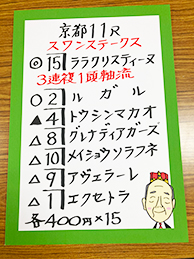 京都11R
スワンステークス
◎15 ララクリスティーヌ
3連複1頭軸流
○2 ルガル
▲4 トウシンマカオ
△8 グレナディアガーズ
△10 メイショウソラフネ
△9 アヴェラーレ
△1 エクセトラ
各400円×15